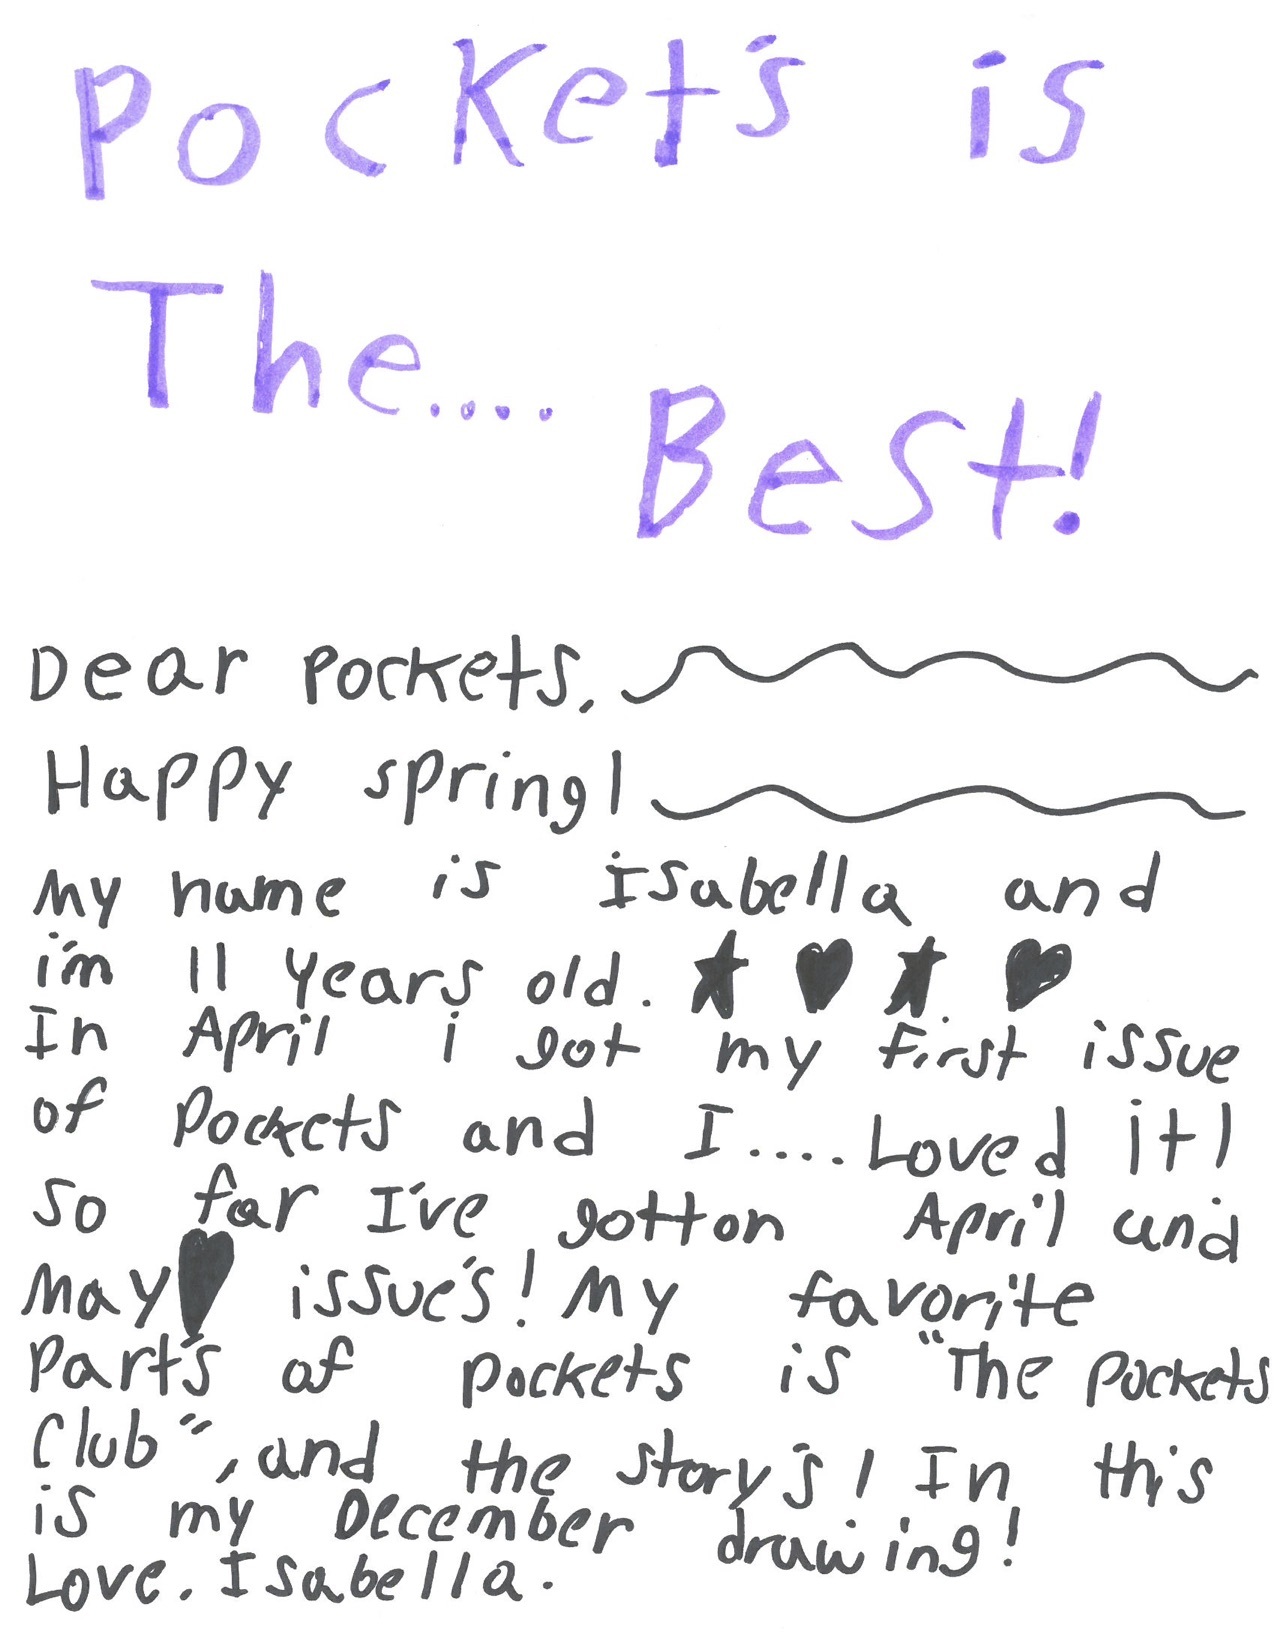 Pocket's is
The....
Best!
Dear Pockets,
Happy spring!
My name is Isabella and
i'm 11 years old.
In April i got my first issue
of Pockets and I.... Loved it!
so far I've gotton April and
May issue's! My favorite
Part's of pockets is "The Pockets
Club", and the story's! In this
is my December drawing!
Love. Isabella.